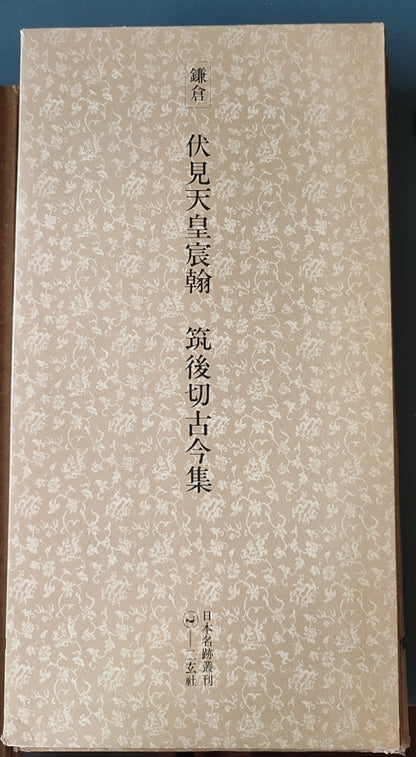 鎌倉
伏見天皇宸翰 筑後切古今集
日本名跡叢刊
②―二玄社